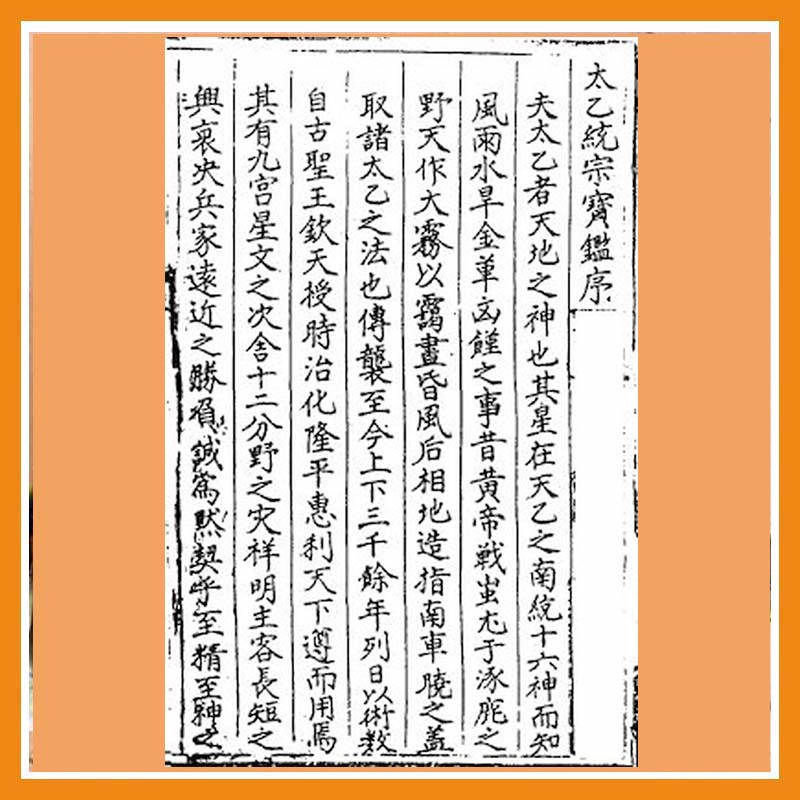 太乙統宗寶鑑序
夫太乙者天地之神也其星在天乙之南統十六神而知
風雨水旱金革凶饉之事昔黄帝戰蚩尤于涿鹿之
野天作大霧以靄晝昏風后相地造指南車曉之蓋
取諸太乙之法也傳襲至今上下三千餘年列曰以術数
自古聖王欽天授時治化隆平惠利天下遵而用焉
其有九宫星文之次舍十二分野之灾祥明主客長短之
興衰决兵家遠近之勝負誠為黙契乎至精至神之